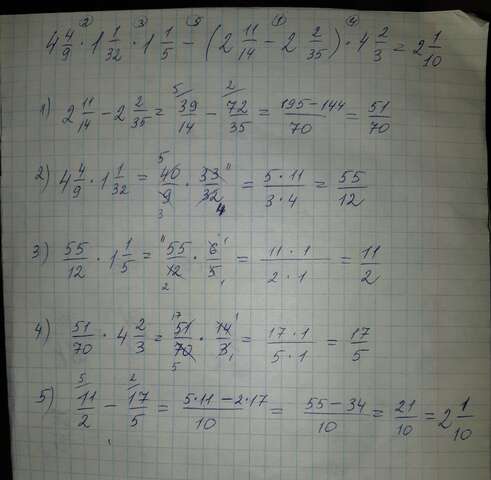 ② ③ ⑤ ① ④
4 4/9 · 1 1/32 · 1 1/5 − (2 11/14 − 2 2/35) · 4 2/3 = 2 1/10
1) 2 11/14 − 2 2/35 = 5/ 39/14 − 2/ 72/35 = (195−144)/70 = 51/70
2) 4 4/9 · 1 1/32 = 5 40/9 3 · 33/32 11 4 = (5·11)/(3·4) = 55/12
3) 55/12 · 1 1/5 = 11 55/12 2 · 6/5 1 1 = (11·1)/(2·1) = 11/2
4) 51/70 · 4 2/3 = 17 51/70 5 · 14/3 1 1 = (17·1)/(5·1) = 17/5
5) 5/ 11/2 − 2/ 17/5 = (5·11−2·17)/10 = (55−34)/10 = 21/10 = 2 1/10